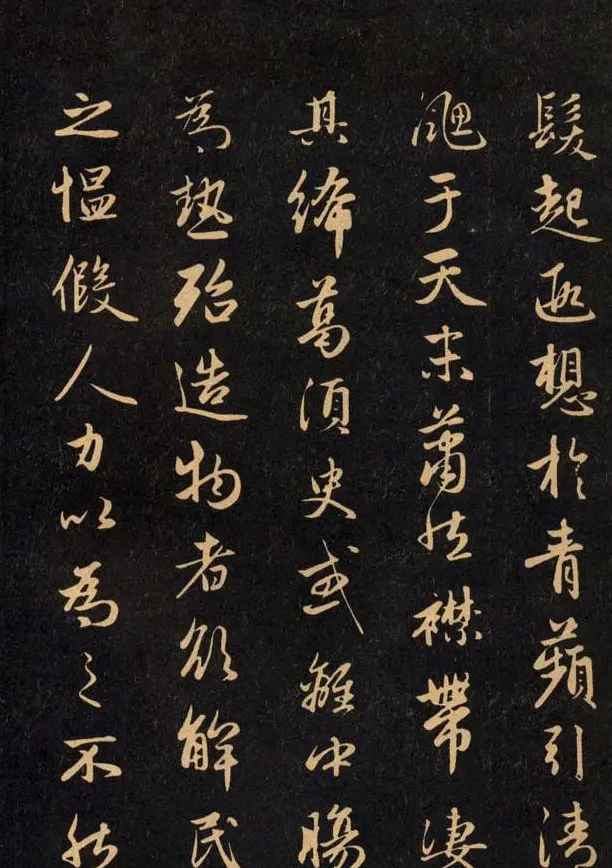 髮起遐想於青蘋引清
颸于天末蕭然襟帶凄
其絺葛須臾或離中暍
為熱殆造物者欲解民
之慍假人力以為之不然